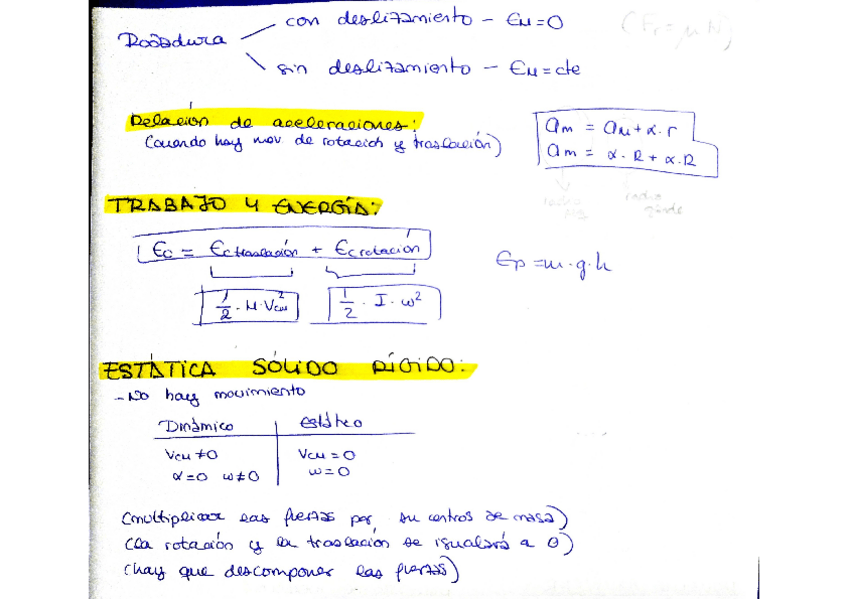 con deslizamiento - EM=0 (Fr=μN)
Rodadura
sin deslizamiento - EM=cte
Relación de aceleraciones:
(cuando hay mov de rotación y traslación)
am = aM + α.r
am = α.R + α.R
radio
radio
grande
TRABAJO Y ENERGÍA:
Ec = Ectraslación + Ecrotación
Ep=m.g.h
1/2 . M.Vcm²
1/2 . I . ω²
ESTÁTICA SÓLIDO RÍGIDO:
- No hay movimiento
Dinámico | Estático
Vcm ≠0 | Vcm = 0
α=0 ω≠0 | ω=0
(multiplicar las fuerzas por su centros de masa)
(la rotación y la traslación se igualará a 0)
(hay que descomponer las fuerzas)